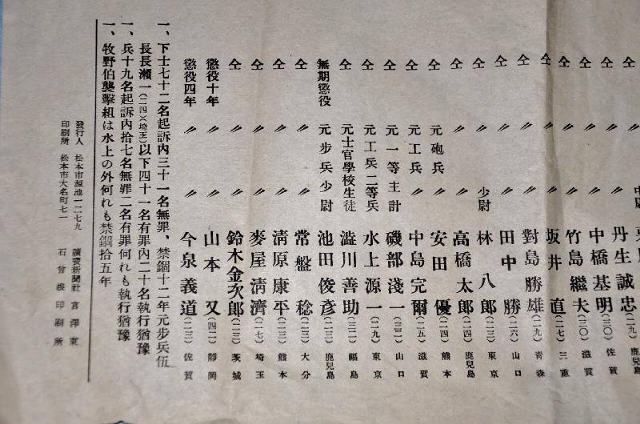 仝 〃 丹生誠忠 鹿兒島
仝 〃 〃 中橋基明（三〇）佐賀
仝 〃 〃 竹島繼夫（三〇）滋賀
仝 〃 〃 坂井直（二七）三重
仝 〃 〃 對島勝雄（二九）青森
仝 〃 〃 田中勝（二六）山口
仝 〃 少尉 林八郎（二三）東京
仝 〃 〃 高橋太郎（二四）鹿兒島
仝 元砲兵 〃 安田優（二四）熊本
仝 元工兵 〃 中島完爾（二五）滋賀
仝 元一等主計 磯部淺一（三二）山口
仝 元工兵二等兵 水上源一（二九）東京
仝 元士官學校生徒 澁川善助（三二）福島
無期懲役 元步兵少尉 池田俊彦（二三）鹿兒島
仝 〃 〃 常盤稔（二三）大分
仝 〃 〃 淸原康平（二三）熊本
仝 〃 〃 麥屋淸濟（二七）埼玉
仝 〃 〃 鈴木金次郎（二三）茨城
懲役十年 〃 〃 山本又（四二）靜岡
懲役四年 〃 〃 今泉義道（二三）佐賀
一、下士七十二名起訴內三十一名無罪、禁錮十二年元步兵伍
長長瀨一（二四×埼玉）以下四十一名有罪內二十名執行猶豫
一、兵十九名起訴內拾七名無罪二名有罪何れも執行猶豫
一、牧野伯襲擊組は水上の外何れも禁錮拾五年
發行人 松本市 一二七九 讀賣新聞社 宮澤 東
印刷所 松本市大名町七一 石曾根印刷所